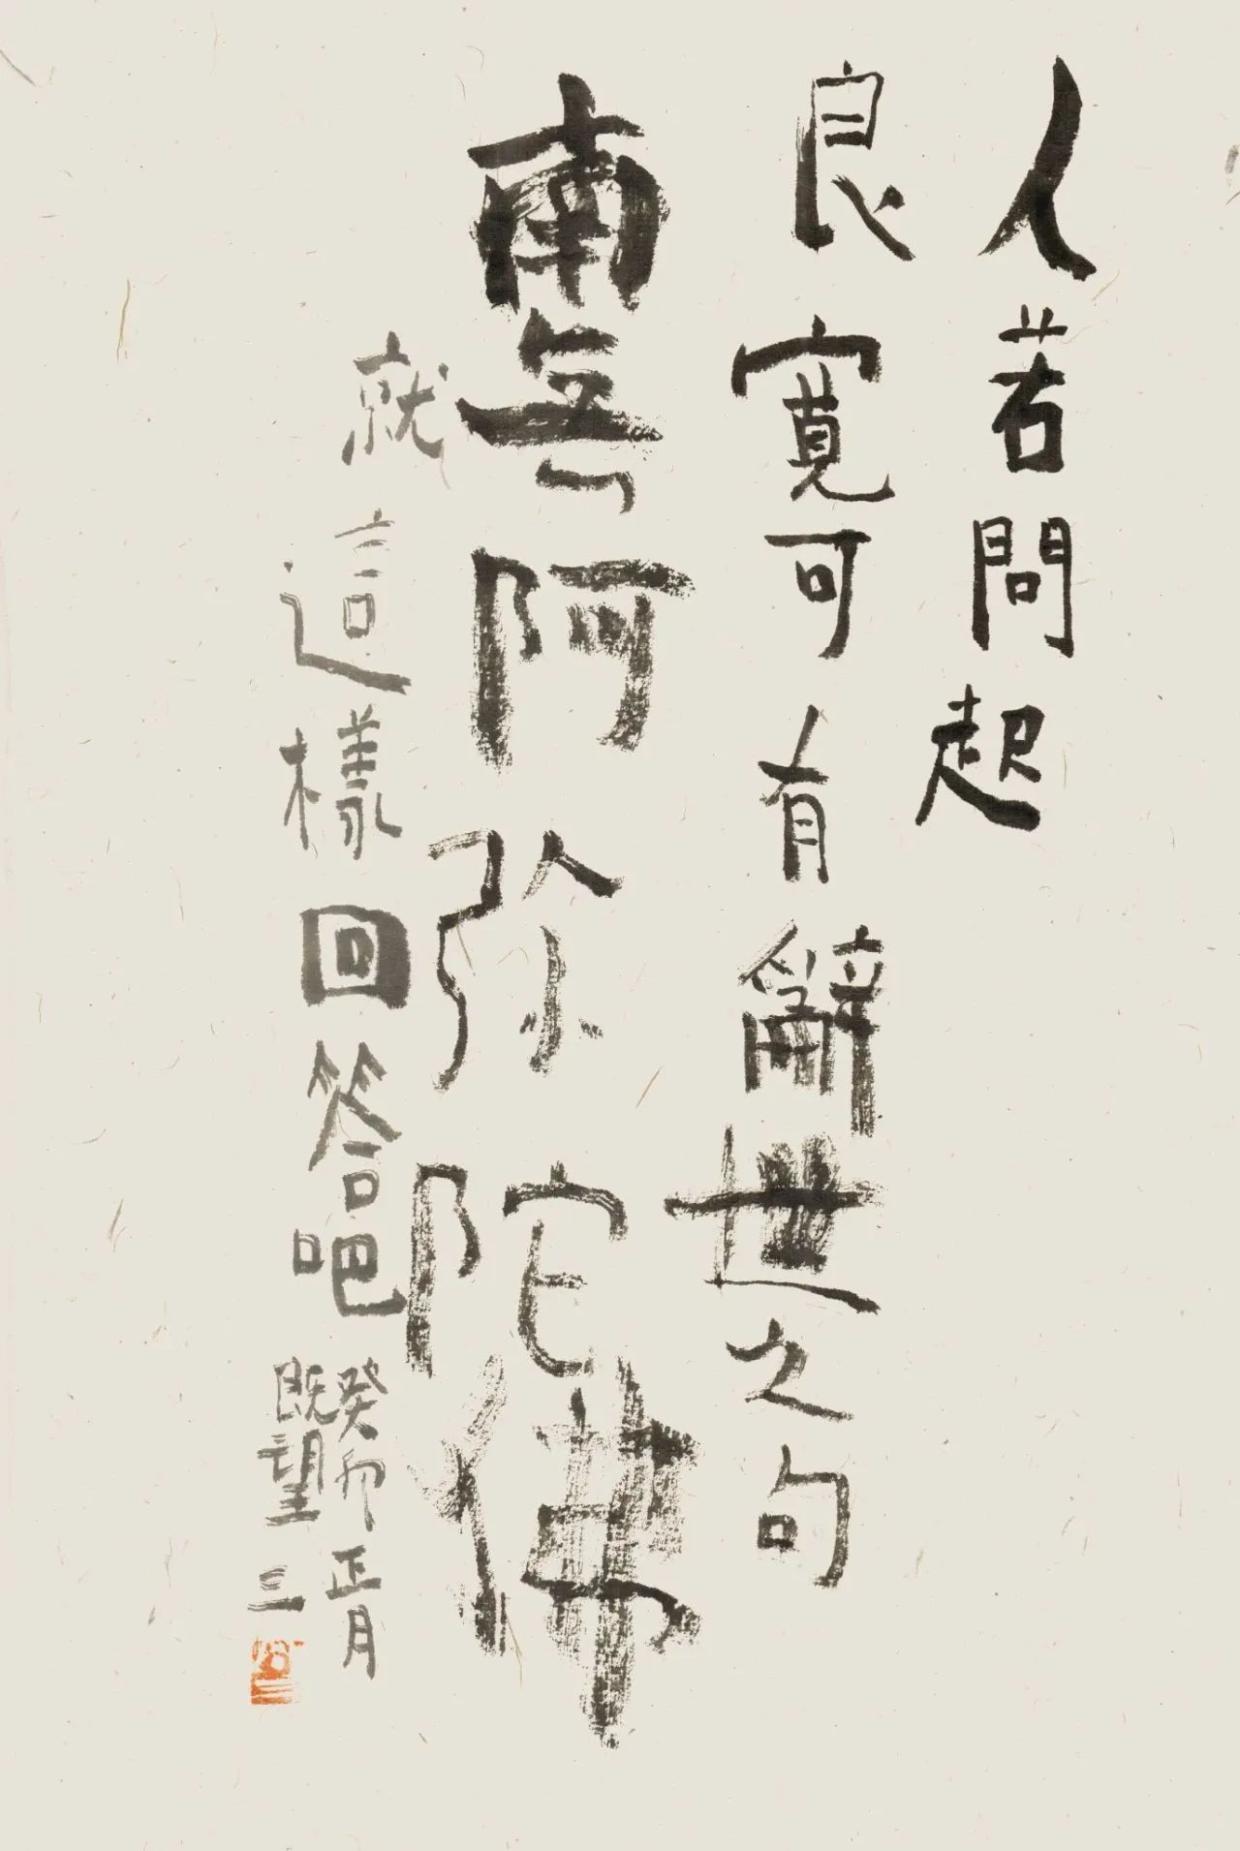 人若問起
良寬可有辭世之句
南無阿弥陀佛
就這樣回答吧
癸卯正月
既望 三